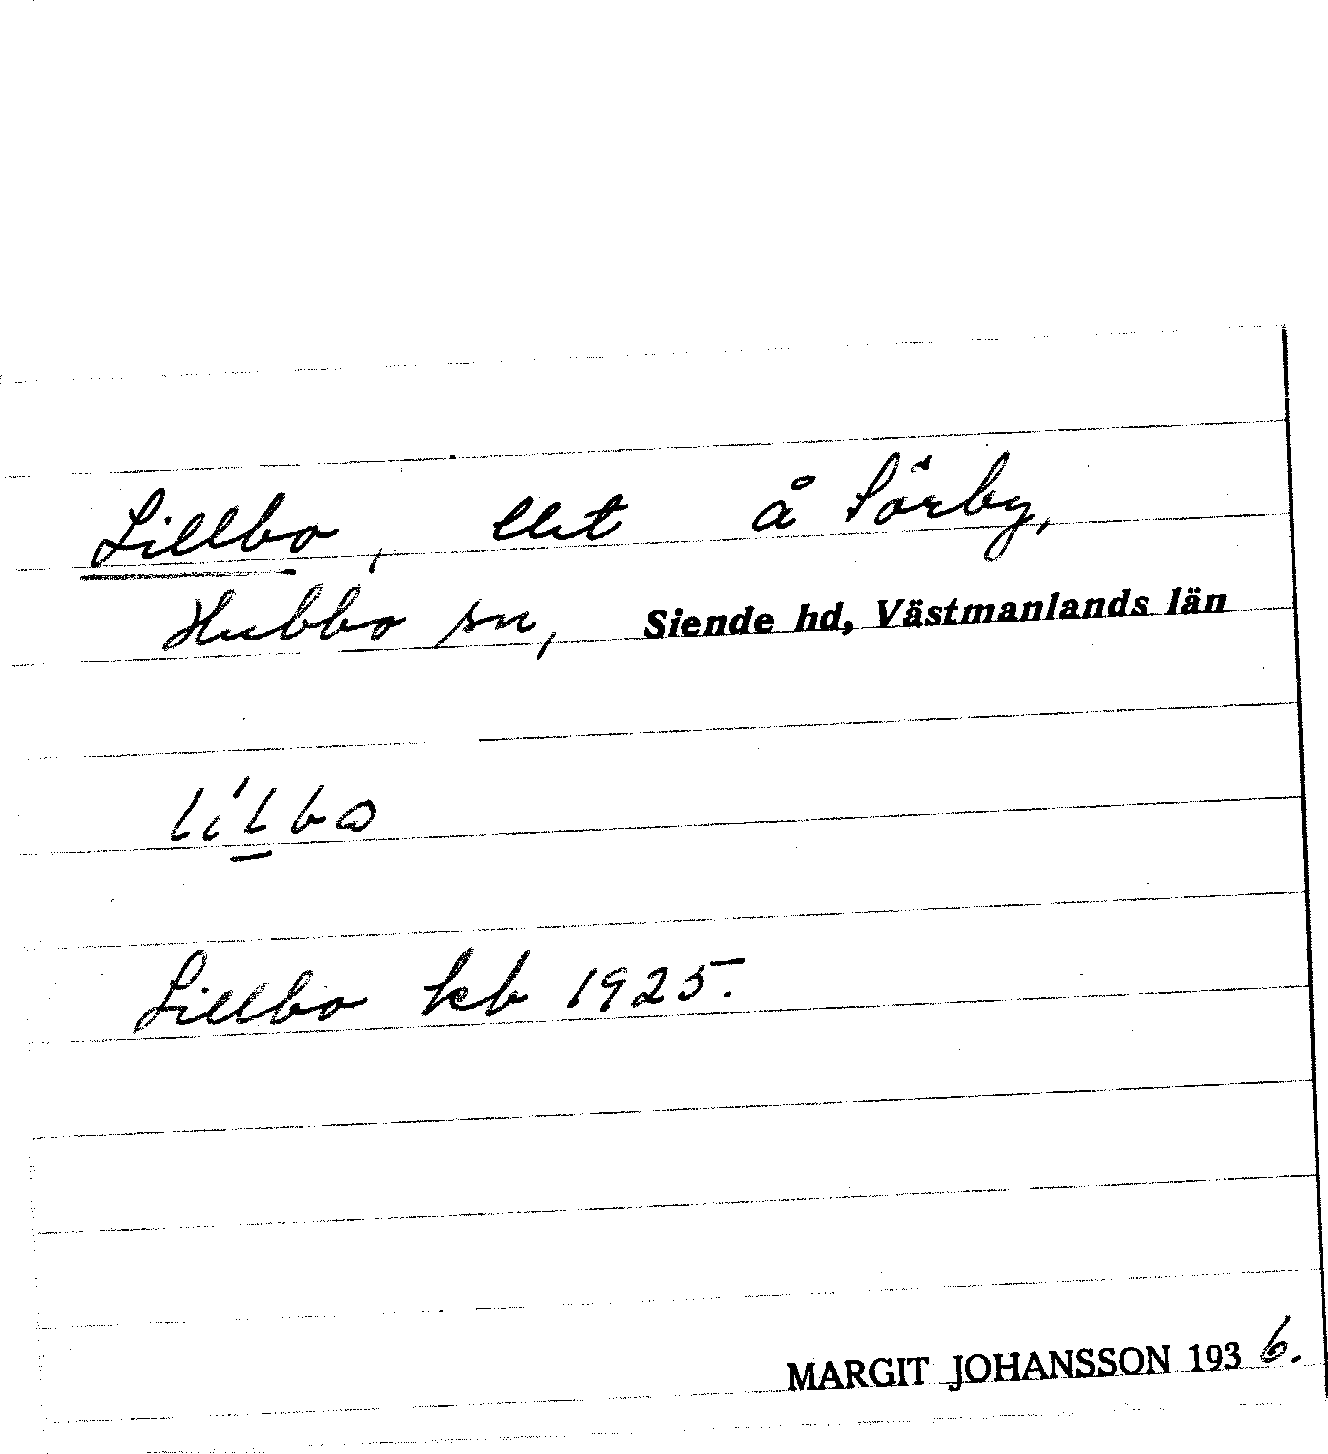 Lillbo, llet å Sörby,
Hubbo sn, Siende hd, Västmanlands län
li'lbo
Lillbo kb 1925.
MARGIT JOHANSSON 1936.